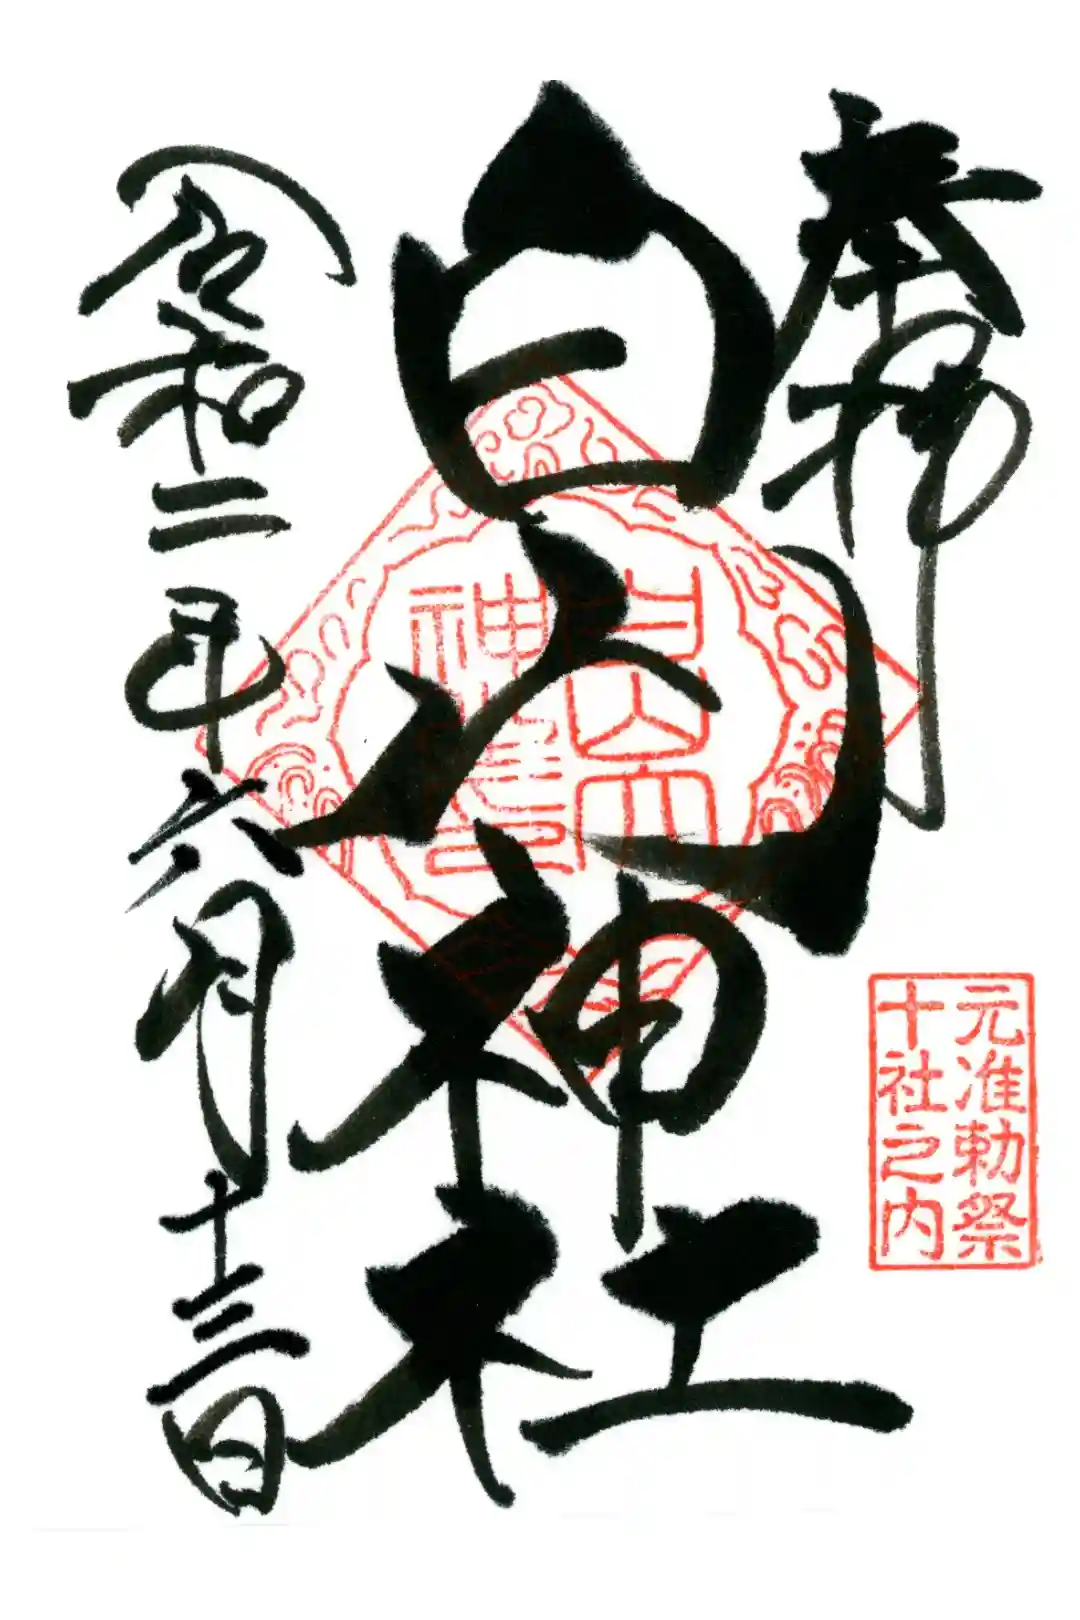 奉拝
元准勅祭
十社之内
白山神社
令和二年六月十三日